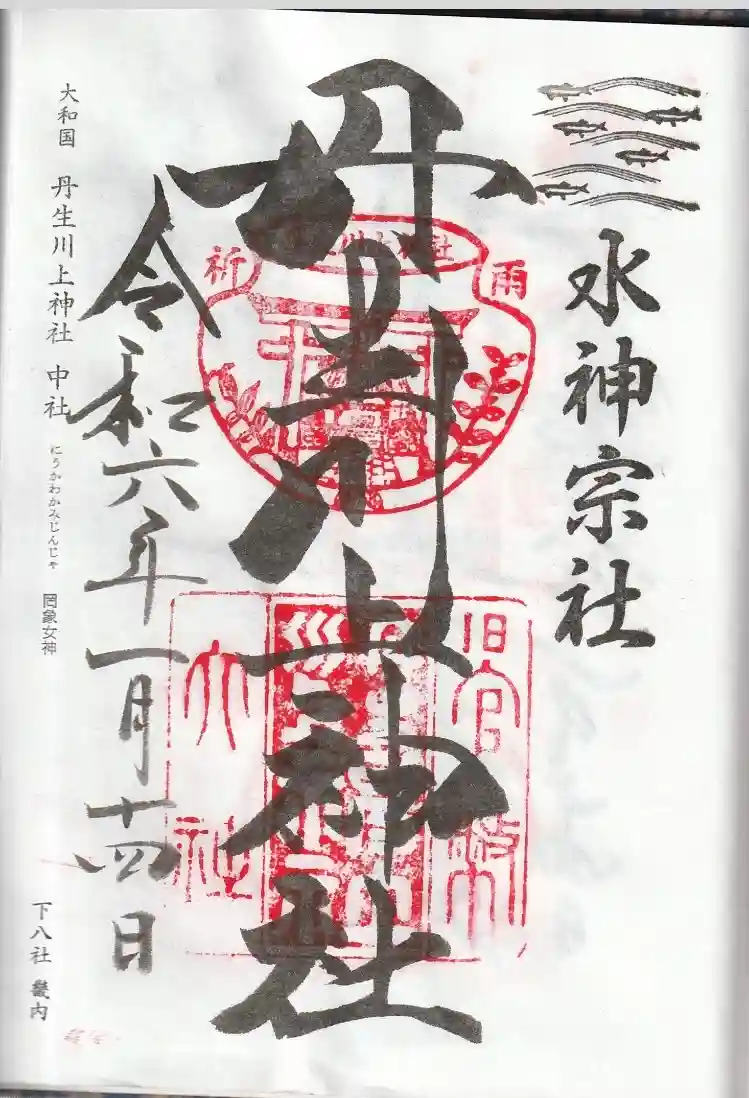 水神宗社
丹生川上神社
祈
雨
旧官幣
大社
令和六年一月十四日
大和国 丹生川上神社 中社 にうかわかみじんじゃ 罔象女神
下八社 畿内